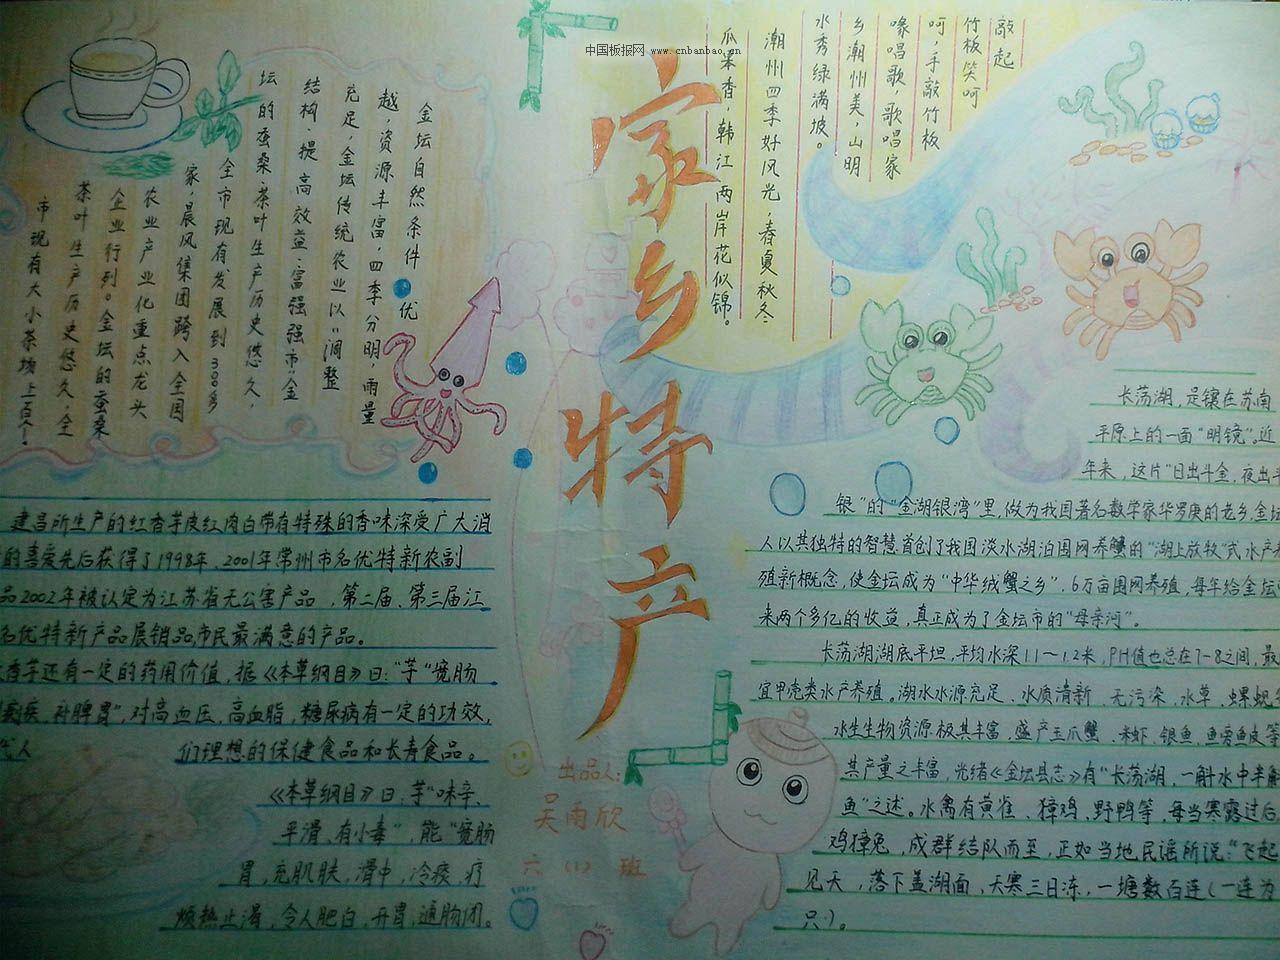 中国板报网 www.cnbanbao.cn
家乡特产
出品人:
吴雨欣
六（1）班
敲起
竹板笑呵
呵，手敲竹板
喙唱歌，歌唱家
乡潮州美，山明
水秀绿满坡。
潮州四季好风光，春夏秋冬
瓜果香，韩江两岸花似锦。
金坛自然条件优
越，资源丰富，四季分明，雨量
充足，金坛传统农业以“调整
结构、提高效益、富强强市”金
坛的蚕桑、茶叶生产历史悠久，
全市现有发展到300多
家，晨风集团跨入全国
农业产业化重点龙头
企业行列。金坛的蚕桑
茶叶生产历史悠久，全
市现有大小茶场上百个！
建昌所生产的红香芋皮红肉白带有特殊的香味深受广大消
的喜爱先后获得了1998年、2001年常州市名优特新农副
品2002年被认定为江苏省无公害产品，第二届、第三届江
名优特新产品展销品市民最满意的产品。
香芋还有一定的药用价值，据《本草纲目》曰：“芋“宽肠
疾、补脾胃”，对高血压、高血脂，糖尿病有一定的功效，
代人们理想的保健食品和长寿食品。
《本草纲目》曰：芋“味辛、
平滑、有小毒”，能“宽肠
胃，充肌肤，滑中，冷痰，疗
烦热止渴，令人肥白，开胃，通肠闭。
长荡湖，是镶在苏南
平原上的一面“明镜”。近
年来，这片“日出斗金，夜出斗
银”的“金湖银湾”里，做为我国著名数学家华罗庚的老乡，金坛
人以其独特的智慧首创了我国淡水湖泊围网养蟹的“湖上放牧”式水产养
殖新概念，使金坛成为“中华绒蟹之乡”，6万亩围网养殖，每年给金坛
来两个多亿的收益，真正成为了金坛市的“母亲河”。
长荡湖湖底平坦，平均水深1.1～1.2米，PH值也总在7-8之间，最
宜甲壳类水产养殖。湖水水源充足、水质清新、无污染、水草、螺蚬
水生生物资源极其丰富，盛产玉爪蟹、米虾、银鱼、鱼旁鱼皮等
其产量之丰富，光绪《金坛县志》有“长荡湖，一斛水中半斛
鱼”之述。水禽有黄雀、獐鸡、野鸭等，每当寒露过后
鸡獐兔，成群结队而至，正如当地民谣所说：“飞起
见天，落下盖湖面，天寒三日冻，一塘数百连（一连为
只）。